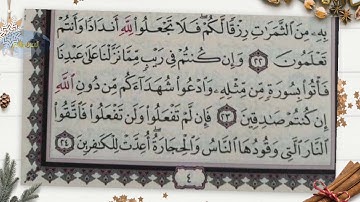 بِهِۦ مِنَ ٱلثَّمَرَٰتِ رِزْقًا لَّكُمْ ۖ فَلَا تَجْعَلُوا۟ لِلَّهِ أَندَادًا وَأَنتُمْ
تَعْلَمُونَ ٢٢ وَإِن كُنتُمْ فِى رَيْبٍ مِّمَّا نَزَّلْنَا عَلَىٰ عَبْدِنَا
فَأْتُوا۟ بِسُورَةٍ مِّن مِّثْلِهِۦ وَٱدْعُوا۟ شُهَدَآءَكُم مِّن دُونِ ٱللَّهِ
إِن كُنتُمْ صَٰدِقِينَ ٢٣ فَإِن لَّمْ تَفْعَلُوا۟ وَلَن تَفْعَلُوا۟ فَٱتَّقُوا۟
ٱلنَّارَ ٱلَّتِى وَقُودُهَا ٱلنَّاسُ وَٱلْحِجَارَةُ ۖ أُعِدَّتْ لِلْكَٰفِرِينَ ٢٤
٤